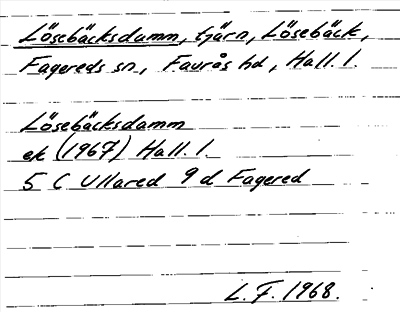 Lösebäcksdamm, tjärn, Lösebäck,
Fagereds sn, Faurås hd, Hall. l.
Lösebäcksdamm
ek (1967) Hall. l.
5 C Ullared 9 d Fagered
L. F. 1968.